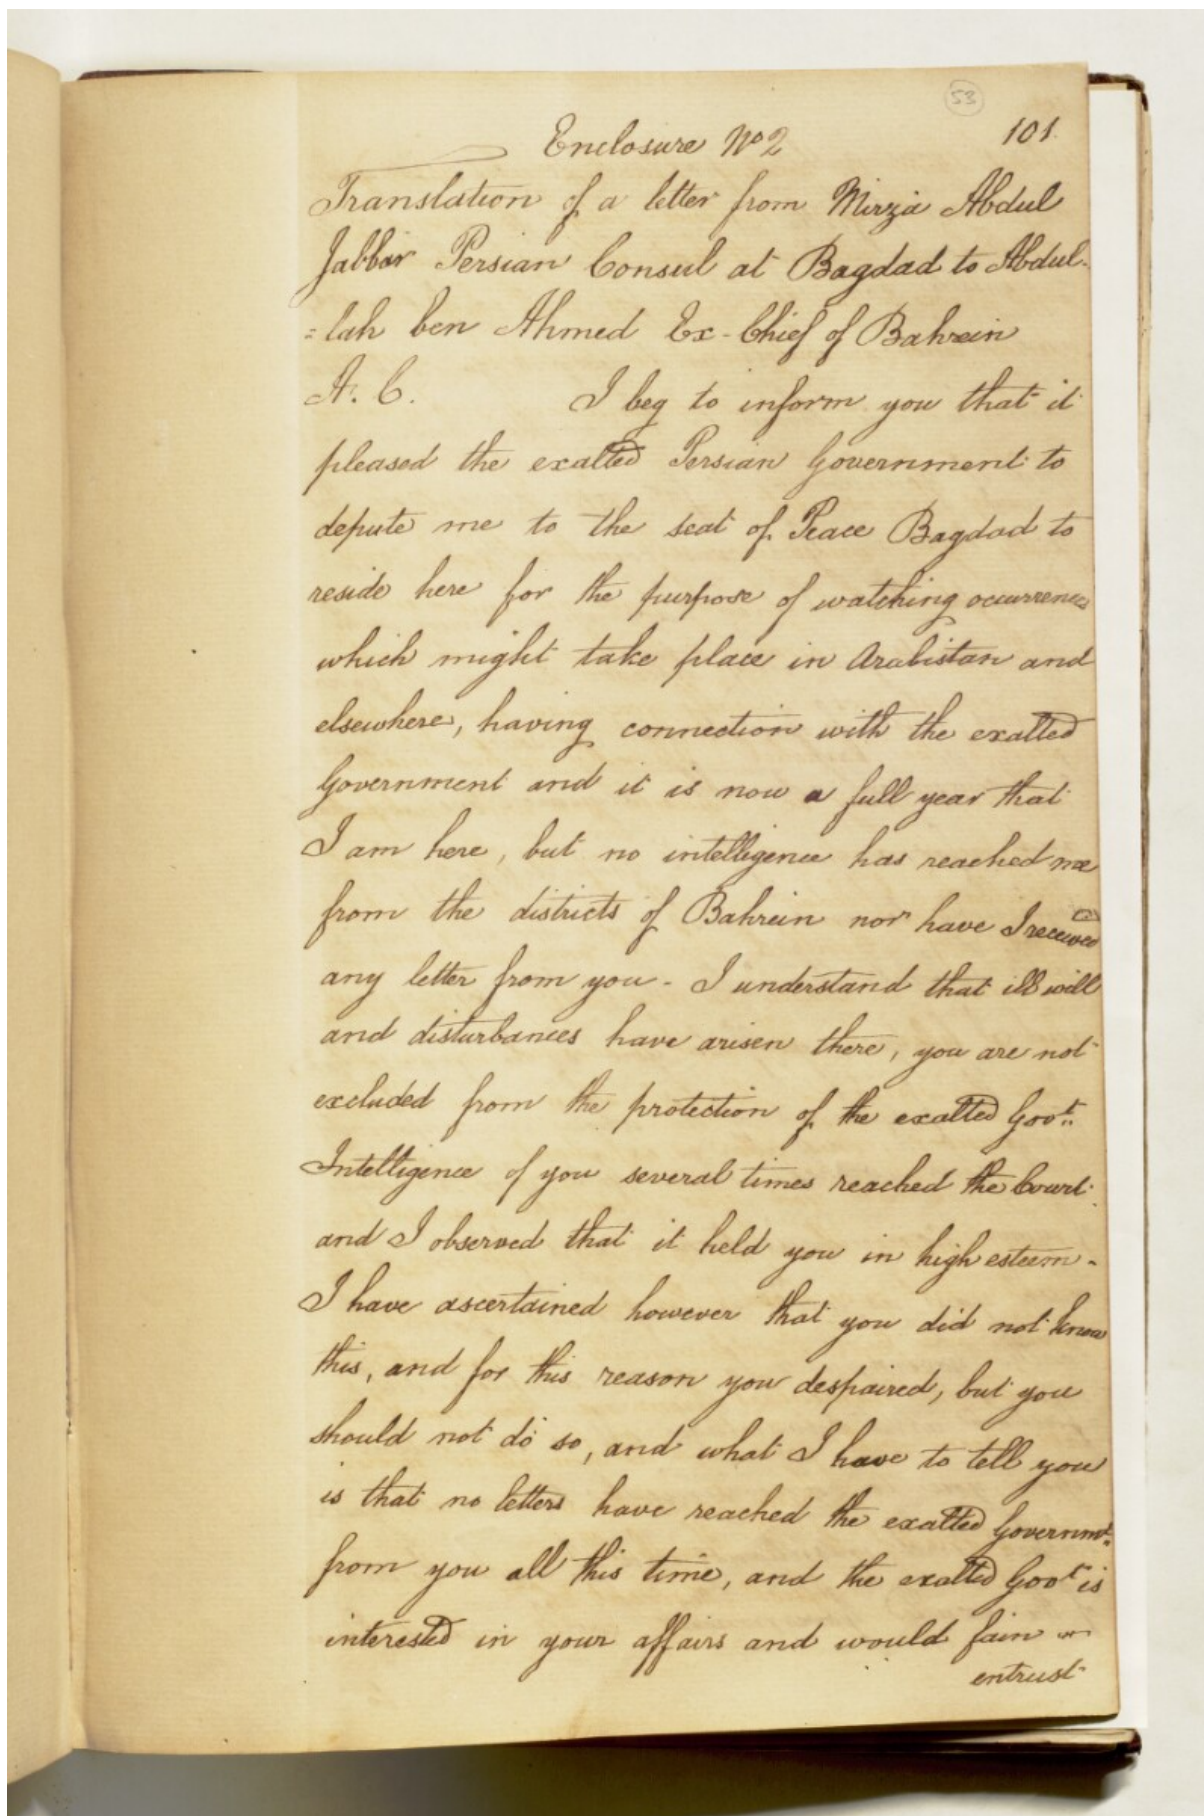 53
101.
Enclosure No 2
Translation of a letter from Mirza Abdul
Jabbar Persian Consul at Bagdad to Abdul-
=lah ben Ahmed Ex-Chief of Bahrein
A. C. I beg to inform you that it
pleased the exalted Persian Government to
depute me to the seat of Peace Bagdad to
reside here for the purpose of watching occurrences
which might take place in Arabistan and
elsewhere, having connection with the exalted
Government and it is now a full year that
I am here, but no intelligence has reached me
from the districts of Bahrein nor have I received
any letter from you - I understand that ill will
and disturbances have arisen there, you are not
excluded from the protection of the exalted Govt.
Intelligence of you several times reached the Court
and I observed that it held you in high esteem -
I have ascertained however that you did not know
this, and for this reason you despaired, but you
should not do so, and what I have to tell you
is that no letters have reached the exalted Governmt.
from you all this time, and the exalted Govt is
interested in your affairs and would fain
entrust